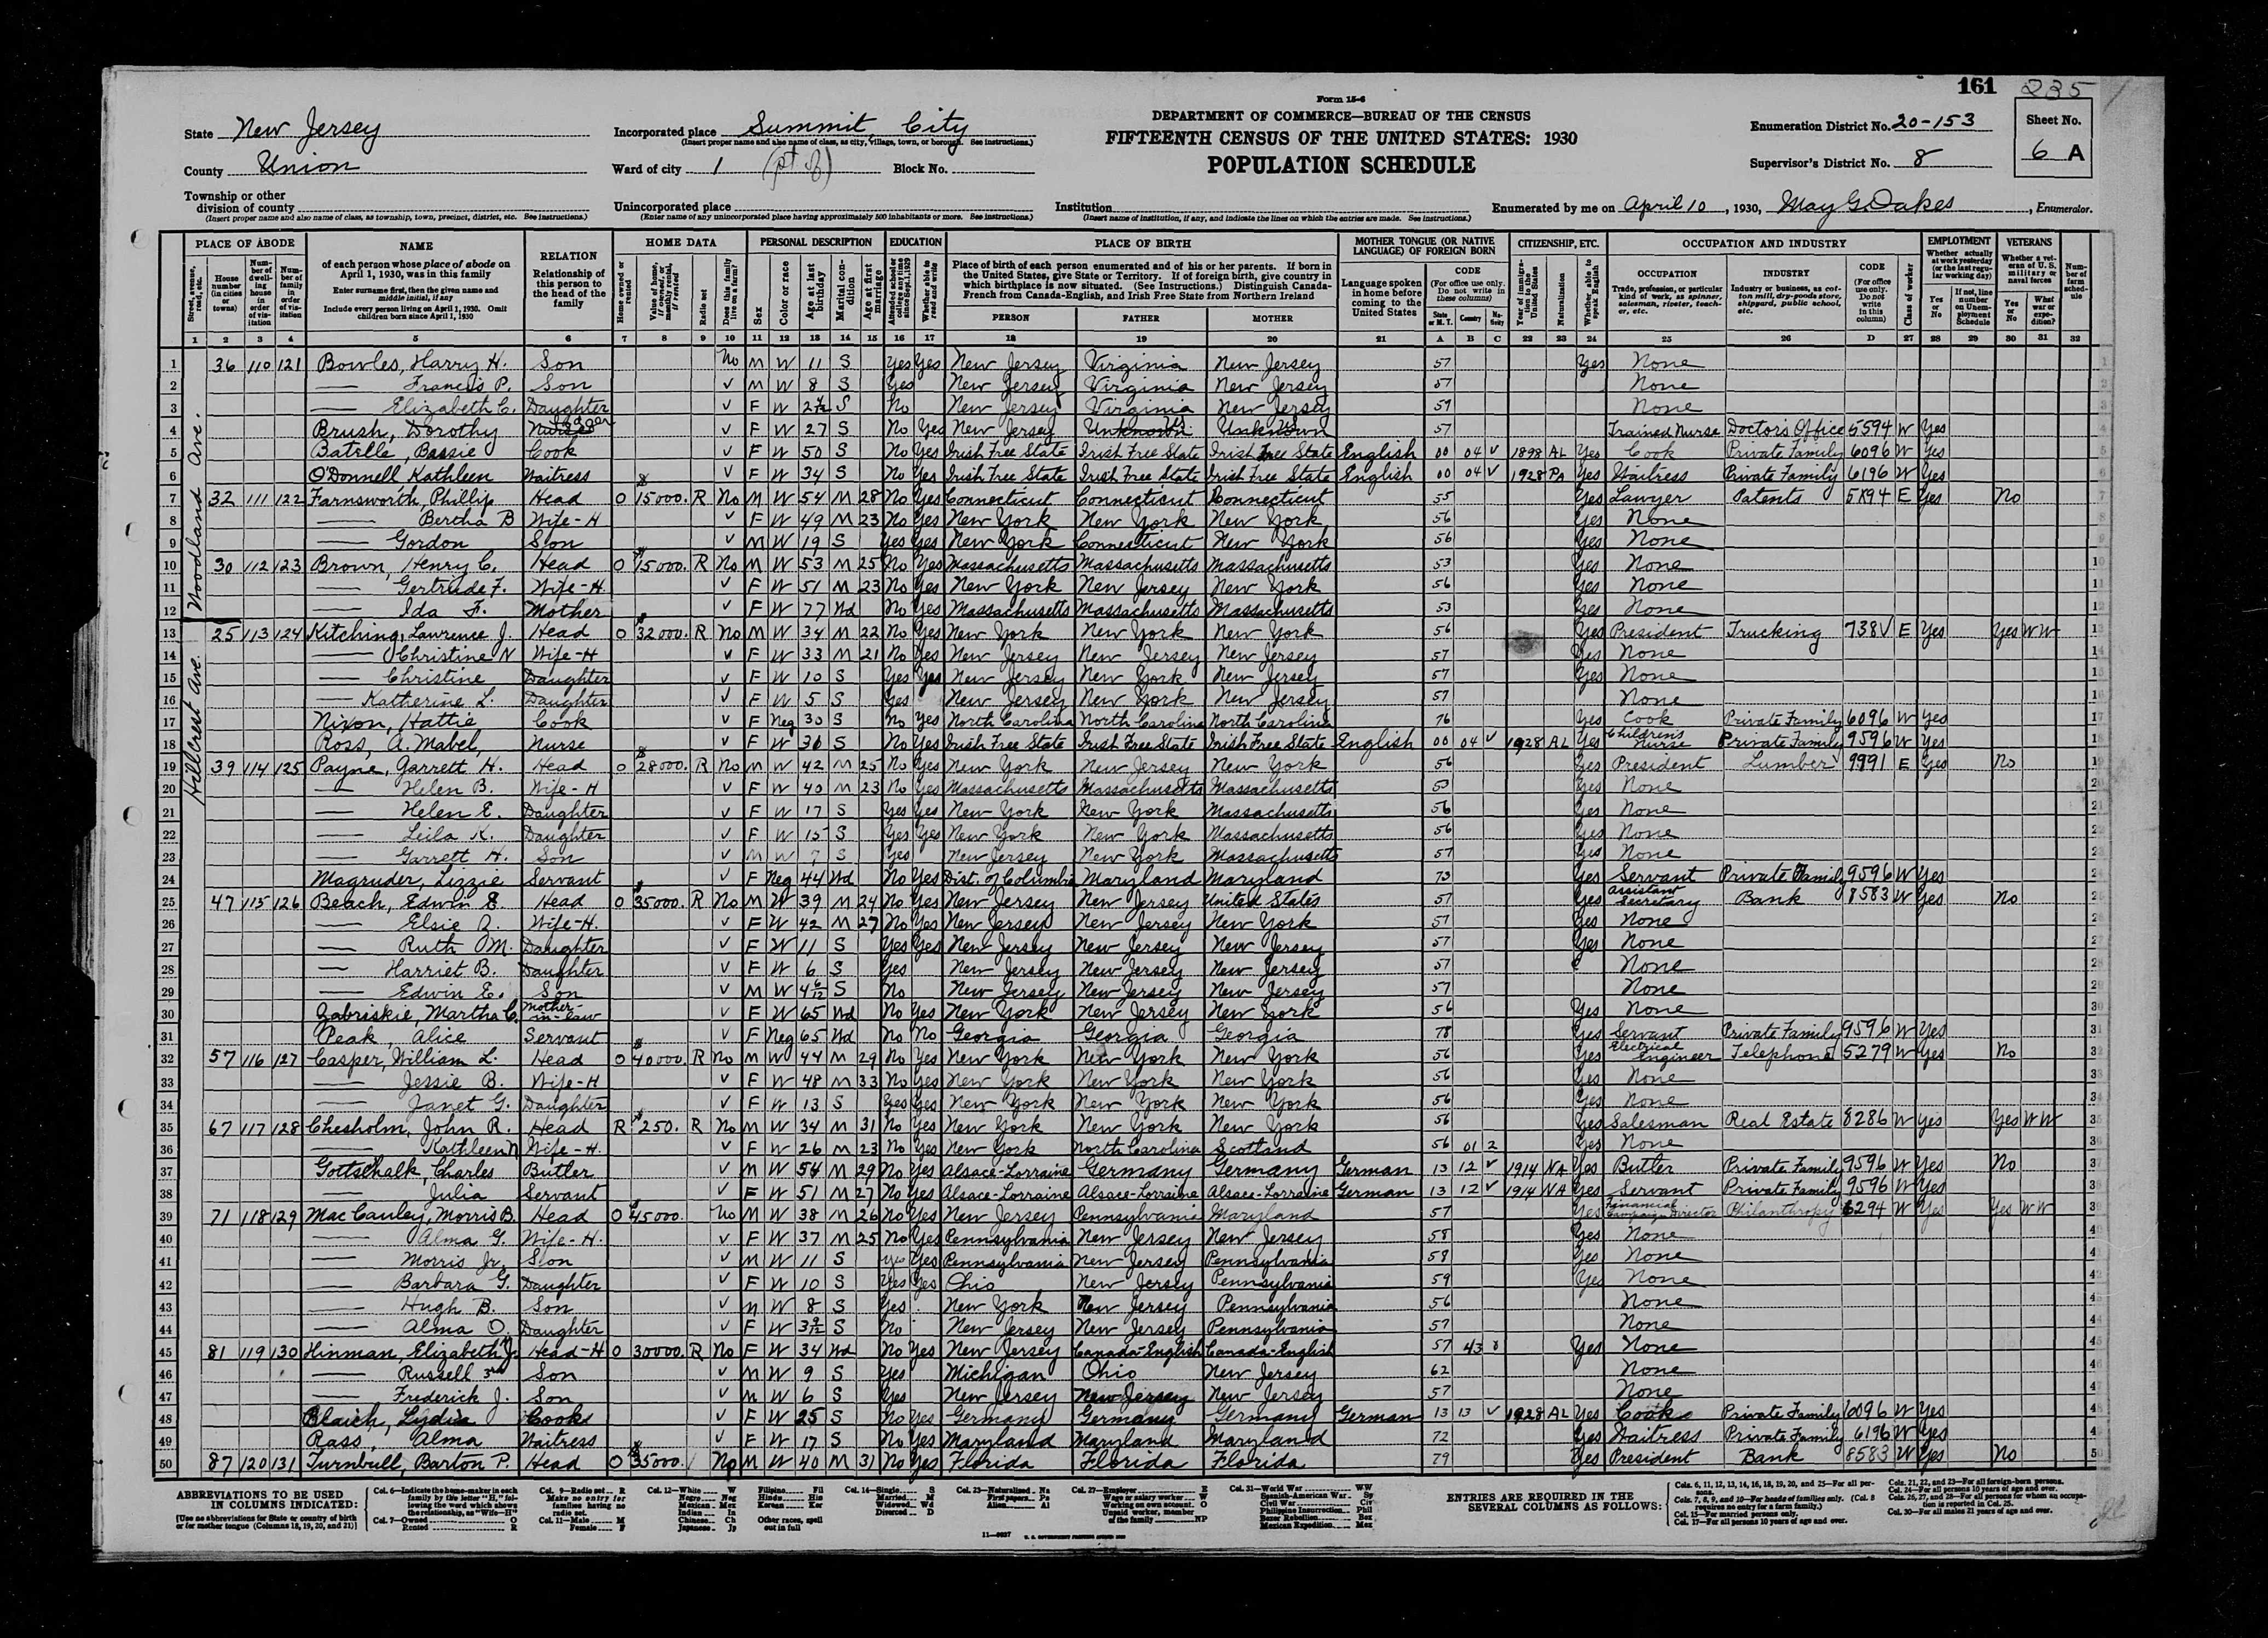 161 235
Form 15-6
DEPARTMENT OF COMMERCE—BUREAU OF THE CENSUS
FIFTEENTH CENSUS OF THE UNITED STATES: 1930
POPULATION SCHEDULE
State New Jersey
County Union
Township or other division of county
(Insert proper name and also name of class, as township, town, precinct, district, etc. See instructions.)
Incorporated place Summit, City
(Insert proper name and also name of class, as city, village, town, or borough. See instructions.)
Ward of city 1 (pt of) Block No.
Unincorporated place
(Enter name of any unincorporated place having approximately 500 inhabitants or more. See instructions.)
Institution
(Insert name of institution, if any, and indicate the lines on which the entries are made. See instructions.)
Enumeration District No. 20-153
Supervisor's District No. 8
Sheet No. 6 A
Enumerated by me on April 10, 1930, May G. Oakes, Enumerator.
PLACE OF ABODE NAME RELATION HOME DATA PERSONAL DESCRIPTION EDUCATION PLACE OF BIRTH MOTHER TONGUE (OR NATIVE LANGUAGE) OF FOREIGN BORN CITIZENSHIP, ETC. OCCUPATION AND INDUSTRY EMPLOYMENT VETERANS
Woodland Ave.
Hillcrest Ave.
1 36 110 121 Bowles, Harry H. Son No M W 11 S Yes Yes New Jersey Virginia New Jersey 57 Yes None
2 —— Francis P. Son v M W 8 S Yes New Jersey Virginia New Jersey 57 None
3 —— Elizabeth C. Daughter v F W S No New Jersey Virginia New Jersey 57 None
4 Brush, Dorothy v F W 27 S No Yes New Jersey Unknown Unknown 57 Trained Nurse Doctors Office 5594 W Yes
5 Batelle, Bessie Cook v F W 50 S No Yes Irish Free State Irish Free State Irish Free State English 00 04 V 1898 AL Yes Cook Private Family 6096 W Yes
6 O'Donnell Kathleen Waitress v F W 34 S No Yes Irish Free State Irish Free State Irish Free State English 00 04 V 1928 PA Yes Waitress Private Family 6196 W Yes
7 32 111 122 Farnsworth, Phillip Head O 15000. R No M W 54 M 28 No Yes Connecticut Connecticut Connecticut 55 Yes Lawyer Patents E Yes No
8 —— Bertha B Wife-H v F W 49 M 23 No Yes New York New York New York 56 Yes None
9 —— Gordon Son v M W 19 S Yes Yes New York Connecticut New York 56 Yes None
10 30 112 123 Brown, Henry C. Head O 15000. R No M W 53 M 25 No Yes Massachusetts Massachusetts Massachusetts 53 Yes None
11 —— Gertrude F. Wife-H. v F W 51 M 23 No Yes New York New Jersey New York 56 Yes None
12 —— Ida F. Mother v F W 77 Wd No Yes Massachusetts Massachusetts Massachusetts 53 Yes None
13 25 113 124 Kitching, Lawrence J. Head O 32000. R No M W 34 M 22 No Yes New York New York New York 56 Yes President Trucking 738V E Yes Yes WW
14 —— Christine N Wife-H v F W 33 M 21 No Yes New Jersey New Jersey New Jersey 57 Yes None
15 —— Christine Daughter v F W 10 S Yes Yes New Jersey New York New Jersey 57 Yes None
16 —— Katherine L. Daughter v F W 5 S Yes New Jersey New York New Jersey 57 None
17 Nixon, Hattie Cook v F Neg 30 S No Yes North Carolina North Carolina North Carolina 76 Yes Cook Private Family 6096 W Yes
18 Ross, A. Mabel, Nurse v F W 36 S No Yes Irish Free State Irish Free State Irish Free State English 00 04 V 1928 AL Yes Children's Nurse Private Family 9596 W Yes
19 39 114 125 Payne, Garrett H. Head O 28000. R No M W 42 M 25 No Yes New York New Jersey New York 56 Yes President Lumber 9991 E Yes No
20 —— Helen B. Wife-H v F W 40 M 23 No Yes Massachusetts Massachusetts Massachusetts 53 Yes None
21 —— Helen E. Daughter v F W 17 S Yes Yes New York New York Massachusetts 56 Yes None
22 —— Leila K. Daughter v F W 15 S Yes Yes New York New York Massachusetts 56 Yes None
23 —— Garrett H. Son v M W 7 S Yes New Jersey New York Massachusetts 57 Yes None
24 Magruder, Lizzie Servant v F Neg 44 Wd No Yes Dist. of Columbia Maryland Maryland 73 Yes Servant Private Family 9596 W Yes
25 47 115 126 Beach, Edwin E. Head O 35000. R No M W 39 M 24 No Yes New Jersey New Jersey United States 57 Yes Assistant Secretary Bank 8583 W Yes No
26 —— Elsie R. Wife-H. v F W 42 M 27 No Yes New Jersey New Jersey New York 57 Yes None
27 —— Ruth M. Daughter v F W 11 S Yes Yes New Jersey New Jersey New Jersey 57 Yes None
28 —— Harriet B. Daughter v F W 6 S Yes New Jersey New Jersey New Jersey 57 None
29 —— Edwin E. Son v M W 4 6/12 S No New Jersey New Jersey New Jersey 57 None
30 Zabriskie, Martha C. Mother-in-law v F W 65 Wd No Yes New York New Jersey New York 56 Yes None
31 Peak, Alice Servant v F Neg 65 Wd No No Georgia Georgia Georgia 78 Yes Servant Private Family 9596 W Yes
32 57 116 127 Casper, William L. Head O 40000. R No M W 44 M 29 No Yes New York New York New York 56 Yes Electrical Engineer Telephone 5279 W Yes No
33 —— Jessie B. Wife-H v F W 48 M 33 No Yes New York New York New York 56 Yes None
34 —— Janet G. Daughter v F W 13 S Yes Yes New York New York New York 56 Yes None
35 67 117 128 Chesholm, John R. Head R 250. R No M W 34 M 31 No Yes New York New York New York 56 Yes Salesman Real Estate 8286 W Yes Yes WW
36 —— Kathleen N Wife-H. v F W 26 M 23 No Yes New York North Carolina Scotland 56 01 2 Yes None
37 Gottschalk, Charles Butler v M W 54 M 29 No Yes Alsace-Lorraine Germany Germany German 13 12 V 1914 NA Yes Butler Private Family 9596 W Yes No
38 —— Julia Servant v F W 51 M 27 No Yes Alsace-Lorraine Alsace-Lorraine Alsace-Lorraine German 13 12 V 1914 NA Yes Servant Private Family 9596 W Yes
39 71 118 129 MacCauley, Morris B. Head O 45000. No M W 38 M 26 No Yes New Jersey Pennsylvania Maryland 57 Yes Financial Campaign Director Philanthropy W Yes Yes WW
40 —— Alma G. Wife-H. v F W 37 M 25 No Yes Pennsylvania New Jersey New Jersey 58 Yes None
41 —— Morris Jr. Son v M W 11 S Yes Yes Pennsylvania New Jersey Pennsylvania 58 Yes None
42 —— Barbara G. Daughter v F W 10 S Yes Yes Ohio New Jersey Pennsylvania 59 Yes None
43 —— Hugh B. Son v M W 8 S Yes New York New Jersey Pennsylvania 56 None
44 —— Alma O. Daughter v F W 3 9/12 S No New Jersey New Jersey Pennsylvania 57 None
45 81 119 130 Hinman, Elizabeth J. Head-H O 30000. R No F W 34 Wd No Yes New Jersey Canada-English Canada-English 57 43 Yes None
46 —— Russell 3rd Son v M W 9 S Yes Michigan Ohio New Jersey 62 None
47 —— Frederick J. Son v M W 6 S Yes New Jersey New Jersey New Jersey 57 None
48 Blaich, Lydia Cook v F W 25 S No Yes Germany Germany Germany German 13 13 V 1928 AL Yes Cook Private Family 6096 W Yes
49 Rass, Alma Waitress v F W 17 S No Yes Maryland Maryland Maryland 72 Yes Waitress Private Family 6196 W Yes
50 87 120 131 Turnbull, Barton P. Head O 35000. No M W 40 M 31 No Yes Florida Florida Florida 79 Yes President Bank 8583 W Yes No
ABBREVIATIONS TO BE USED IN COLUMNS INDICATED:
[Use no abbreviations for State or country of birth or for mother tongue (Columns 18, 19, 20, and 21)]
ENTRIES ARE REQUIRED IN THE SEVERAL COLUMNS AS FOLLOWS: